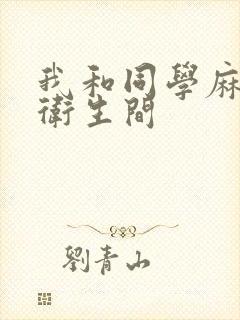 我和同學麻
衛生間
劉青山